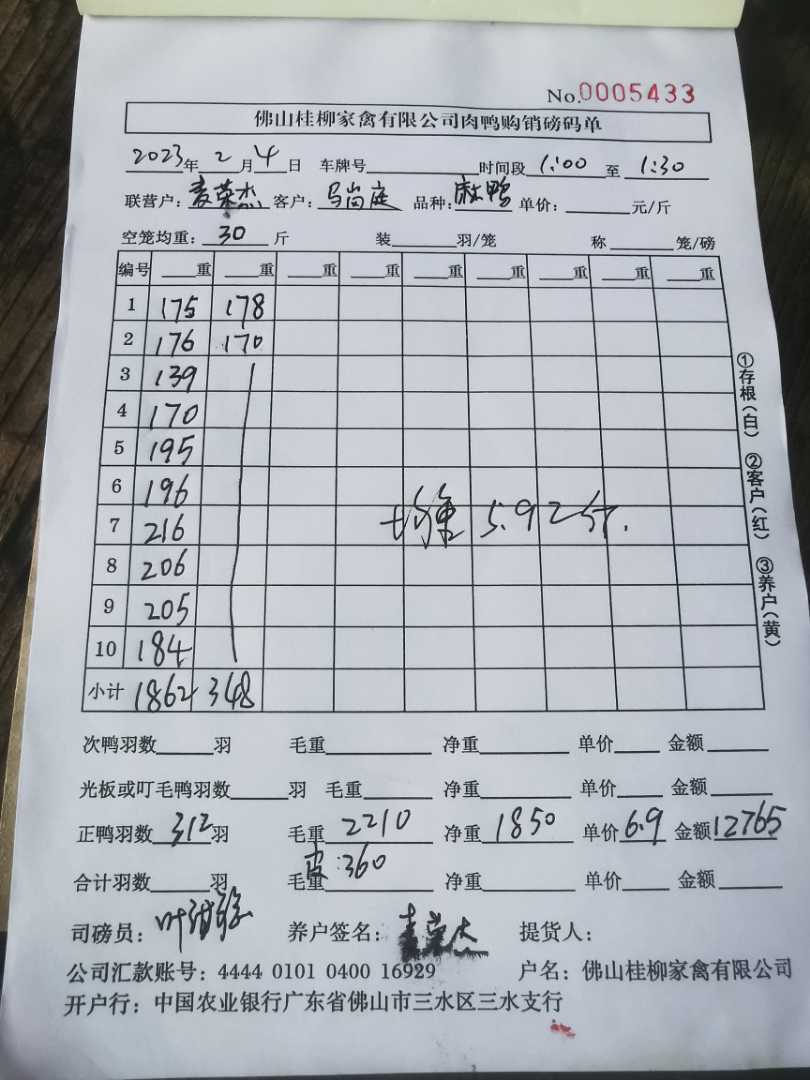 No.0005433
佛山桂柳家禽有限公司肉鸭购销磅码单
2023年2月4日 车牌号 时间段1:00至1:30
联营户:麦荣杰 客户:马尚庭 品种:麻鸭 单价: 元/斤
空笼均重:30斤 装 羽/笼 称 笼/磅
编号 重 重 重 重 重 重 重 重 重
1 175 178
2 176 170
3 139
4 170
5 195
6 196
7 216 均重5.92斤.
8 206
9 205
10 184
小计 1862 348
①存根(白) ②客户(红) ③养户(黄)
次鸭羽数 羽 毛重 净重 单价 金额
光板或叮毛鸭羽数 羽 毛重 净重 单价 金额
正鸭羽数312羽 毛重2210 净重1850 单价6.9 金额12765
皮:360
合计羽数 羽 毛重 净重 单价 金额
司磅员: 养户签名:麦荣杰 提货人:
公司汇款账号:4444 0101 0400 16929 户名:佛山桂柳家禽有限公司
开户行:中国农业银行广东省佛山市三水区三水支行